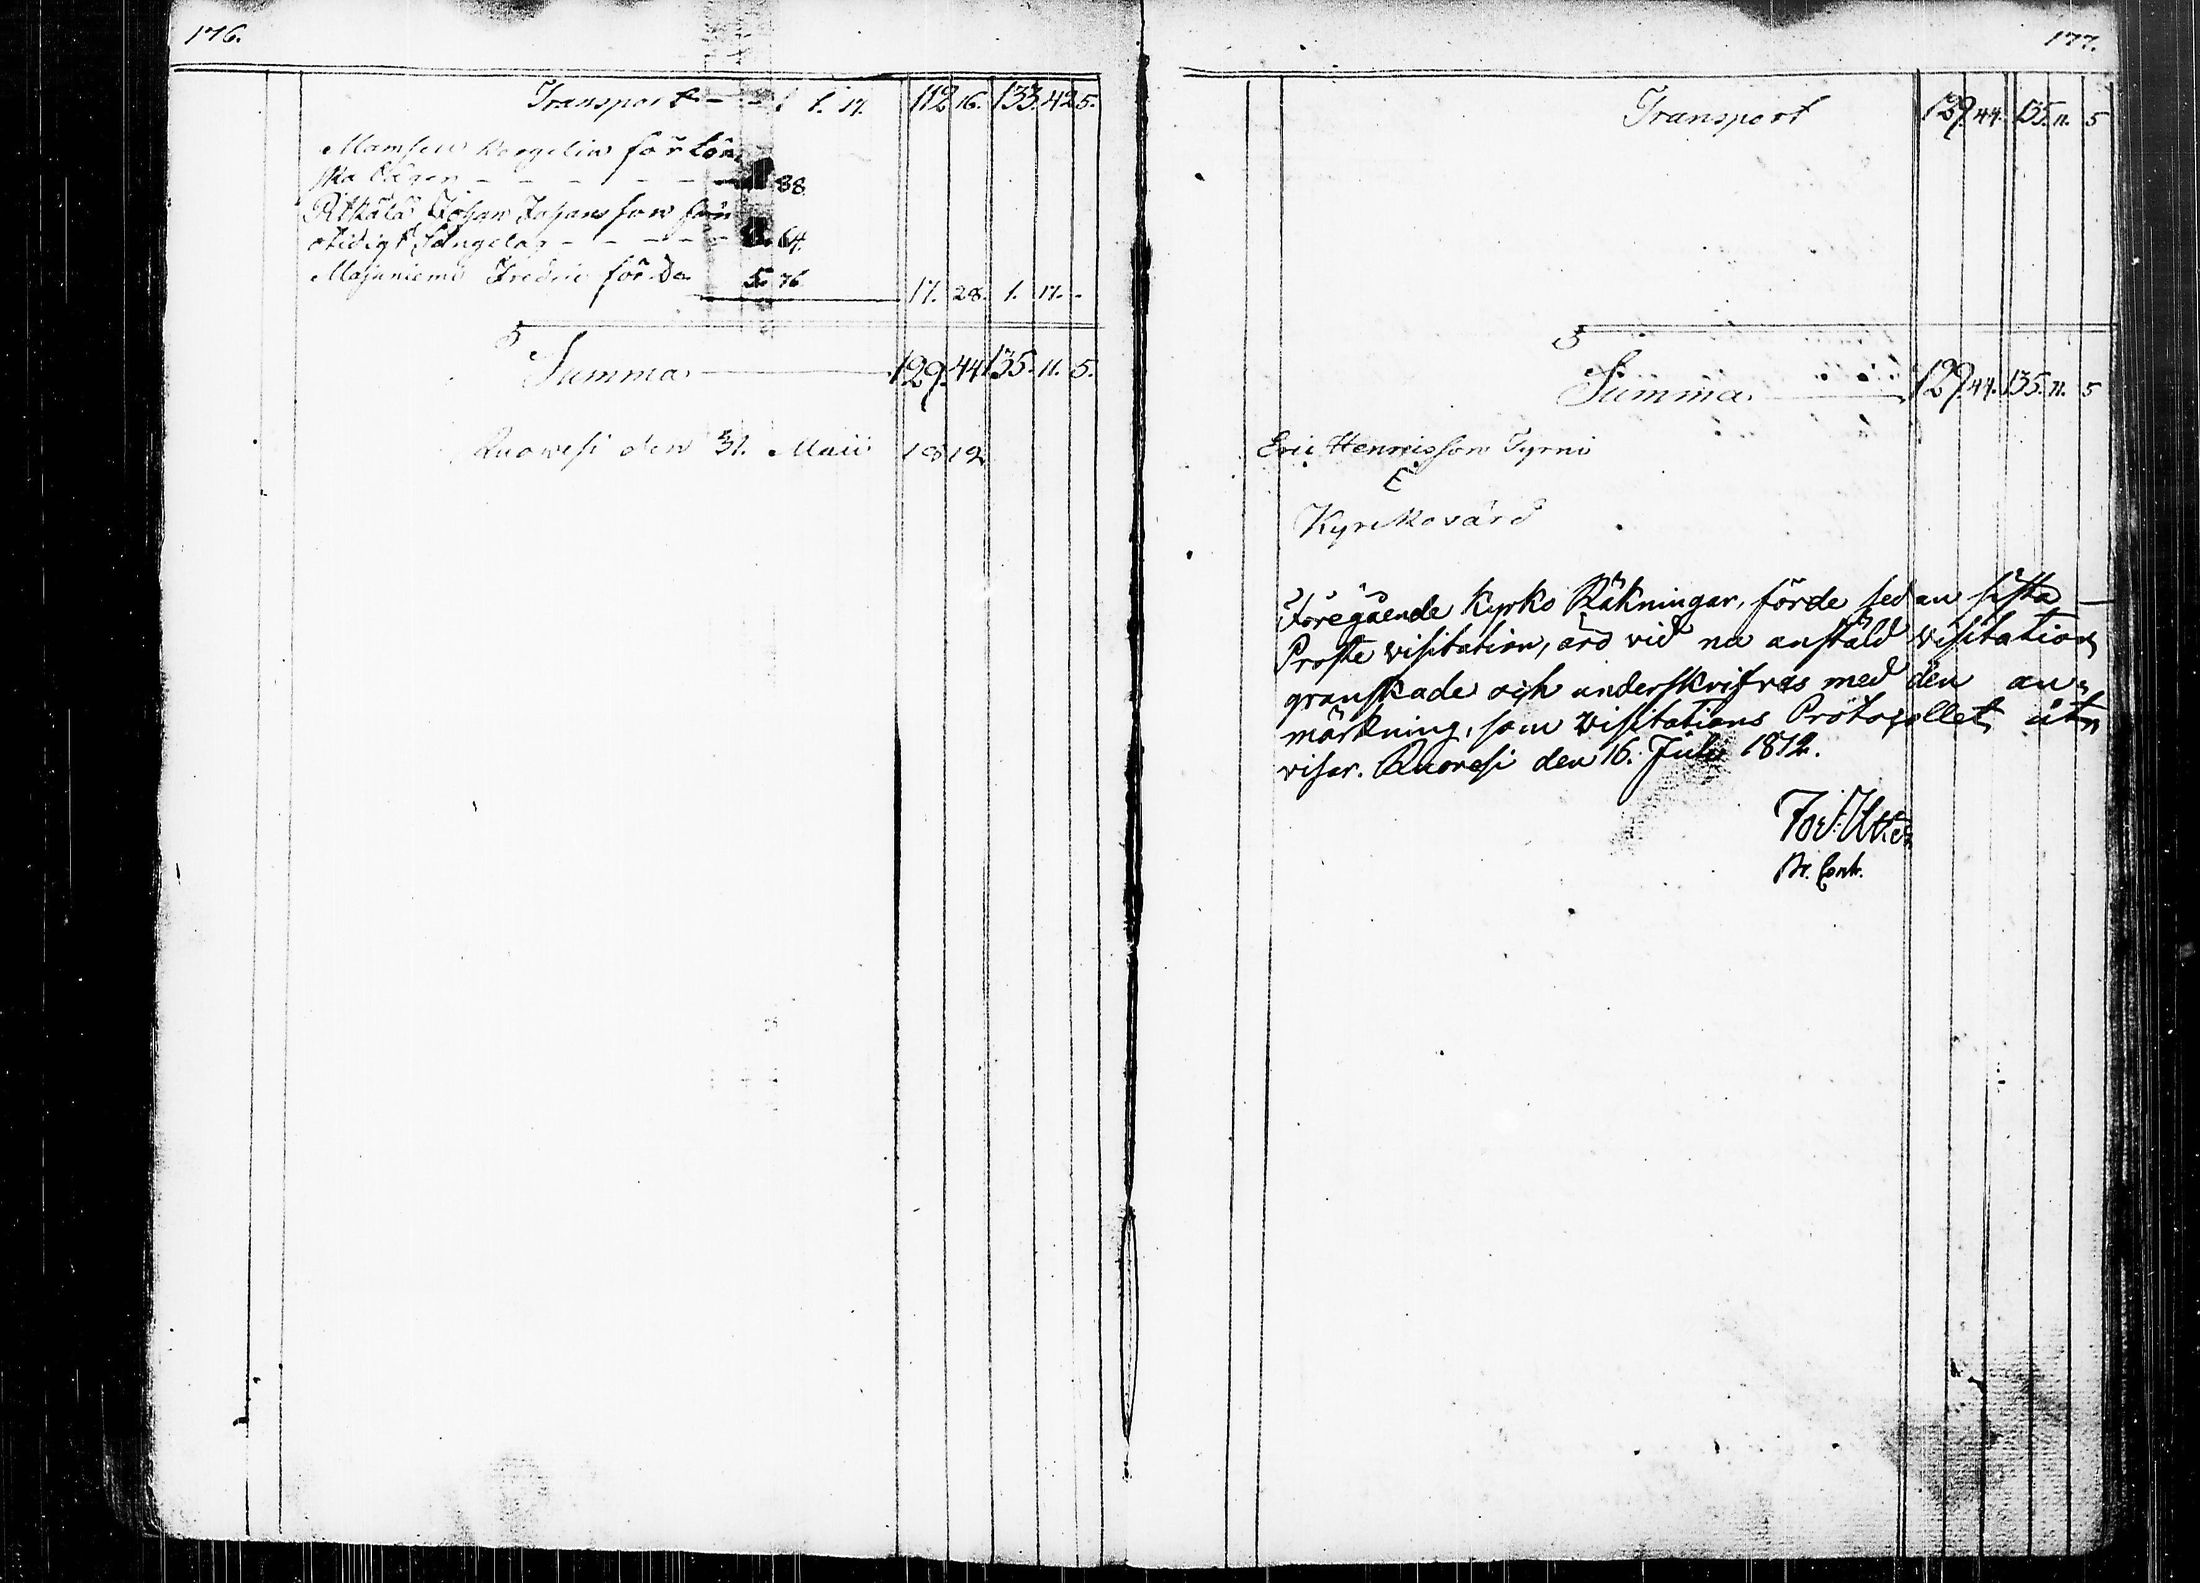 176.
Transport - - 1. 17. 112 16. 133. 42 5.
Mamsell för
ska - - - - - - 38.
Pitkälä Johan Johansson för
otidigt - - - - 64.
Majaniemi Fredric för Do 5. 76 17. 28. 1. 17. -
Summa 129. 44 135. 11. 5.
Ruowesi den 31. Maii 1812
177.
Transport 129. 44. 135. 11. 5
Summa 129. 44. 135. 11. 5
Eric Henricsson Tyrni
E
Kyrckovärd
Föregående Kyrko Räkningar, förde sedan sista
Proste visitation, äro vid nu anstäld visitation
granskade och underskrifvas med den an-
märkning, som visitations Protocollet ut-
visar. Ruovesi den 16. Julii 1812.
Pr. Cont.